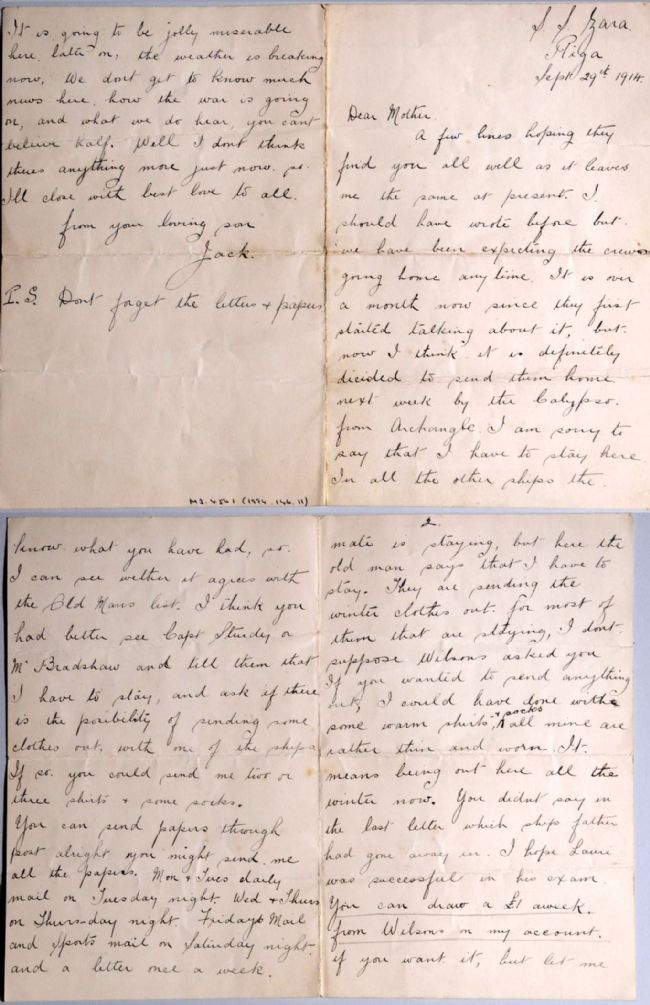 S. S. Zara.
Riga
Sept. 29th 1914.
Dear Mother.
A few lines hoping they
find you all well as it leaves
me the same at present. I
should have wrote before but.
we have been expecting the crews
going home any time. It is over
a month now since they first
started talking about it, but.
now I think it is definitely
decided to send them home
next week by the Calypso.
from Archangle. I am sorry to
say that I have to stay here.
In all the other ships the.
2.
mate is staying, but here the
old man says that I have to
stay. They are sending the
winter clothes out. for most of
them that are staying, I dont.
suppose Wilsons asked you
If you wanted to send anything
out, I could have done with
some warm shirts, + socks all mine are
rather thin and worn. It.
means being out here all the
winter now. You didnt say in
the last letter which ship father
had gone away in. I hope Lauri
was successful in his exam.
You can draw a £1 aweek.
from Wilsons on my account.
if you want it, but let me
know. what you have had, so.
I can see wether it agrees with
the Old Mans list. I think you
had better see Capt Sturdy or
Mr Bradshaw and tell them that
I have to stay, and ask if there
is the posibility of sending some
clothes out. with one of the ships.
If so. you could send me two or
three shirts + some socks.
You can send papers through
post alright you might send me
all the papers. Mon + Tues daily
mail on Tuesday night. Wed + Thurs
on Thursday night. Fridays Mail
and Sports mail on Saturday night.
and a letter once a week.
It is going to be jolly miserable
here later on, the weather is breaking
now, We dont get to know much
news here, how the war is going
on, and what we do hear, you cant
believe half. Well I dont think
theres anything more just now. so.
Ill close with best love to all.
from your loving son
Jack.
P.S. Dont forget the letters + papers